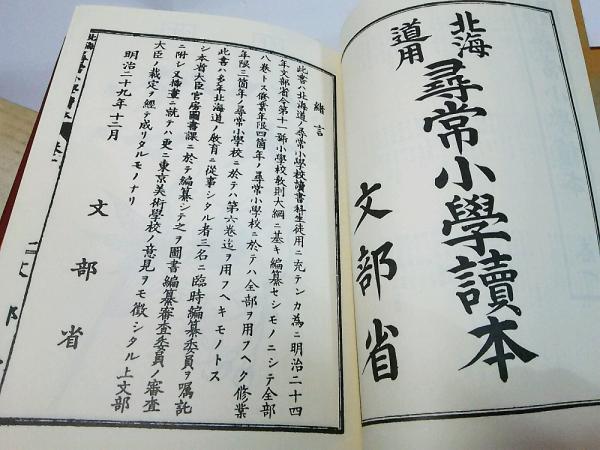 北海
道用
尋常小學讀本
文部省
緒言
此書ハ北海道ノ尋常小學校讀書科生徒用ニ充テンカ為ニ明治二十四
年文部省令第十一號小學校教則大綱ニ基キ編纂セシモノニシテ全部
八卷トス修業年限四箇年ノ尋常小學校ニ於テハ全部ヲ用フヘク修業
年限三箇年ノ尋常小學校ニ於テハ第六卷迄ヲ用フヘキモノトス
此書ハ多年北海道ノ教育ニ從事シタル者三名ニ臨時編纂委員ヲ囑託
シ本省大臣官房圖書課ニ於テ編纂シテ之ヲ圖書編纂審査委員ノ審査
ニ附シ又挿畫ニ就テハ更ニ東京美術學校ノ意見ヲモ徴シタル上文部
大臣ノ裁定ヲ經テ成リタルモノナリ
明治二十九年十二月
文部省